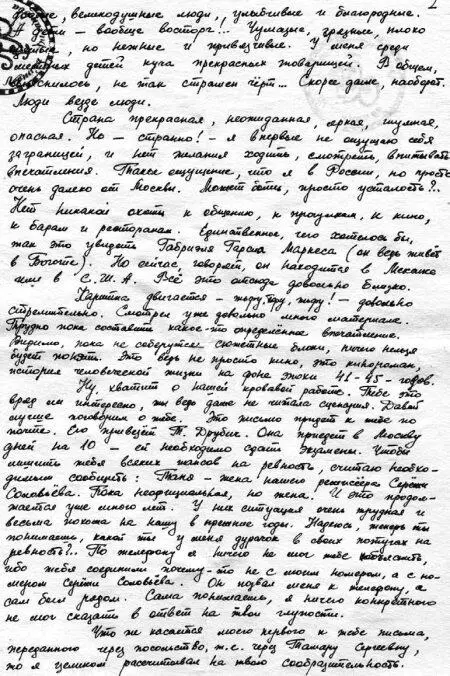 2
добрые, великодушные люди, улыбчивые и благородные.
А дети — вообще восторг!.. Чумазые, грязные, плохо
но нежные и привязчивые. У меня среди
местных детей куча прекрасных товарищей. В общем,
выяснилось, не так страшен чёрт... Скорее даже, наоборот.
Люди везде люди.
Страна прекрасная, неожиданная, яркая, шумная,
опасная. Но — странно! — я впервые не ощущаю себя
заграницей, и нет желания ходить, смотреть, впитывать
впечатления. Такое ощущение, что я в России, но просто
очень далеко от Москвы. Может быть, просто усталость?..
Нет никакой охоты к общению, к прогулкам, к кино,
к барам и ресторанам. Единственное, чего хотелось бы,
так это увидеть Габриэля Гарсиа Маркеса (он ведь живёт
в Боготе). Но сейчас, говорят, он находится в Мексике
или в С.Ш.А. Всё это отсюда довольно близко.
Картина двигается — тьфу, тьфу, тьфу! — довольно
стремительно. Смотрел уже довольно много материала.
Трудно пока составить какое-то определённое впечатление.
Видимо, пока не соберутся сюжетные блоки, ничего нельзя
будет понять. Это ведь не просто кино, это кинороман,
история человеческой жизни на фоне эпохи 41-45-годов.
Ну, хватит о нашей кровавой работе. Тебе это
вряд ли интересно, ты ведь даже не читала сценария. Давай
лучше поговорим о тебе. Это письмо придёт к тебе по
почте. Его привезёт Т. Друбич. Она приедет в Москву
дней на 10 — ей необходимо сдать экзамены. Чтобы
лишить тебя всяких шансов на ревность, считаю необхо-
димым сообщить: Таня — жена нашего режиссёра Сергея
Соловьёва. Пока неофициальная, но жена. И это продол-
жается уже много лет. У них ситуация очень трудная и
весьма похожа на нашу в прежние годы. Надеюсь, теперь ты
понимаешь, какой ты у меня дурачок в своих потугах на
ревность?.. По телефону я ничего не мог тебе объяснить,
ибо тебя соединили почему-то не с моим номером, а с но-
мером Сергея Соловьёва. Он позвал меня к телефону, а
сам был рядом. Сама понимаешь, я ничего конкретного
не мог сказать в ответ на твои глупости.
Что же касается моего первого к тебе письма,
переданного через посольство, т.е. через Тамару Сергеевну,
то я целиком рассчитывал на твою сообразительность.